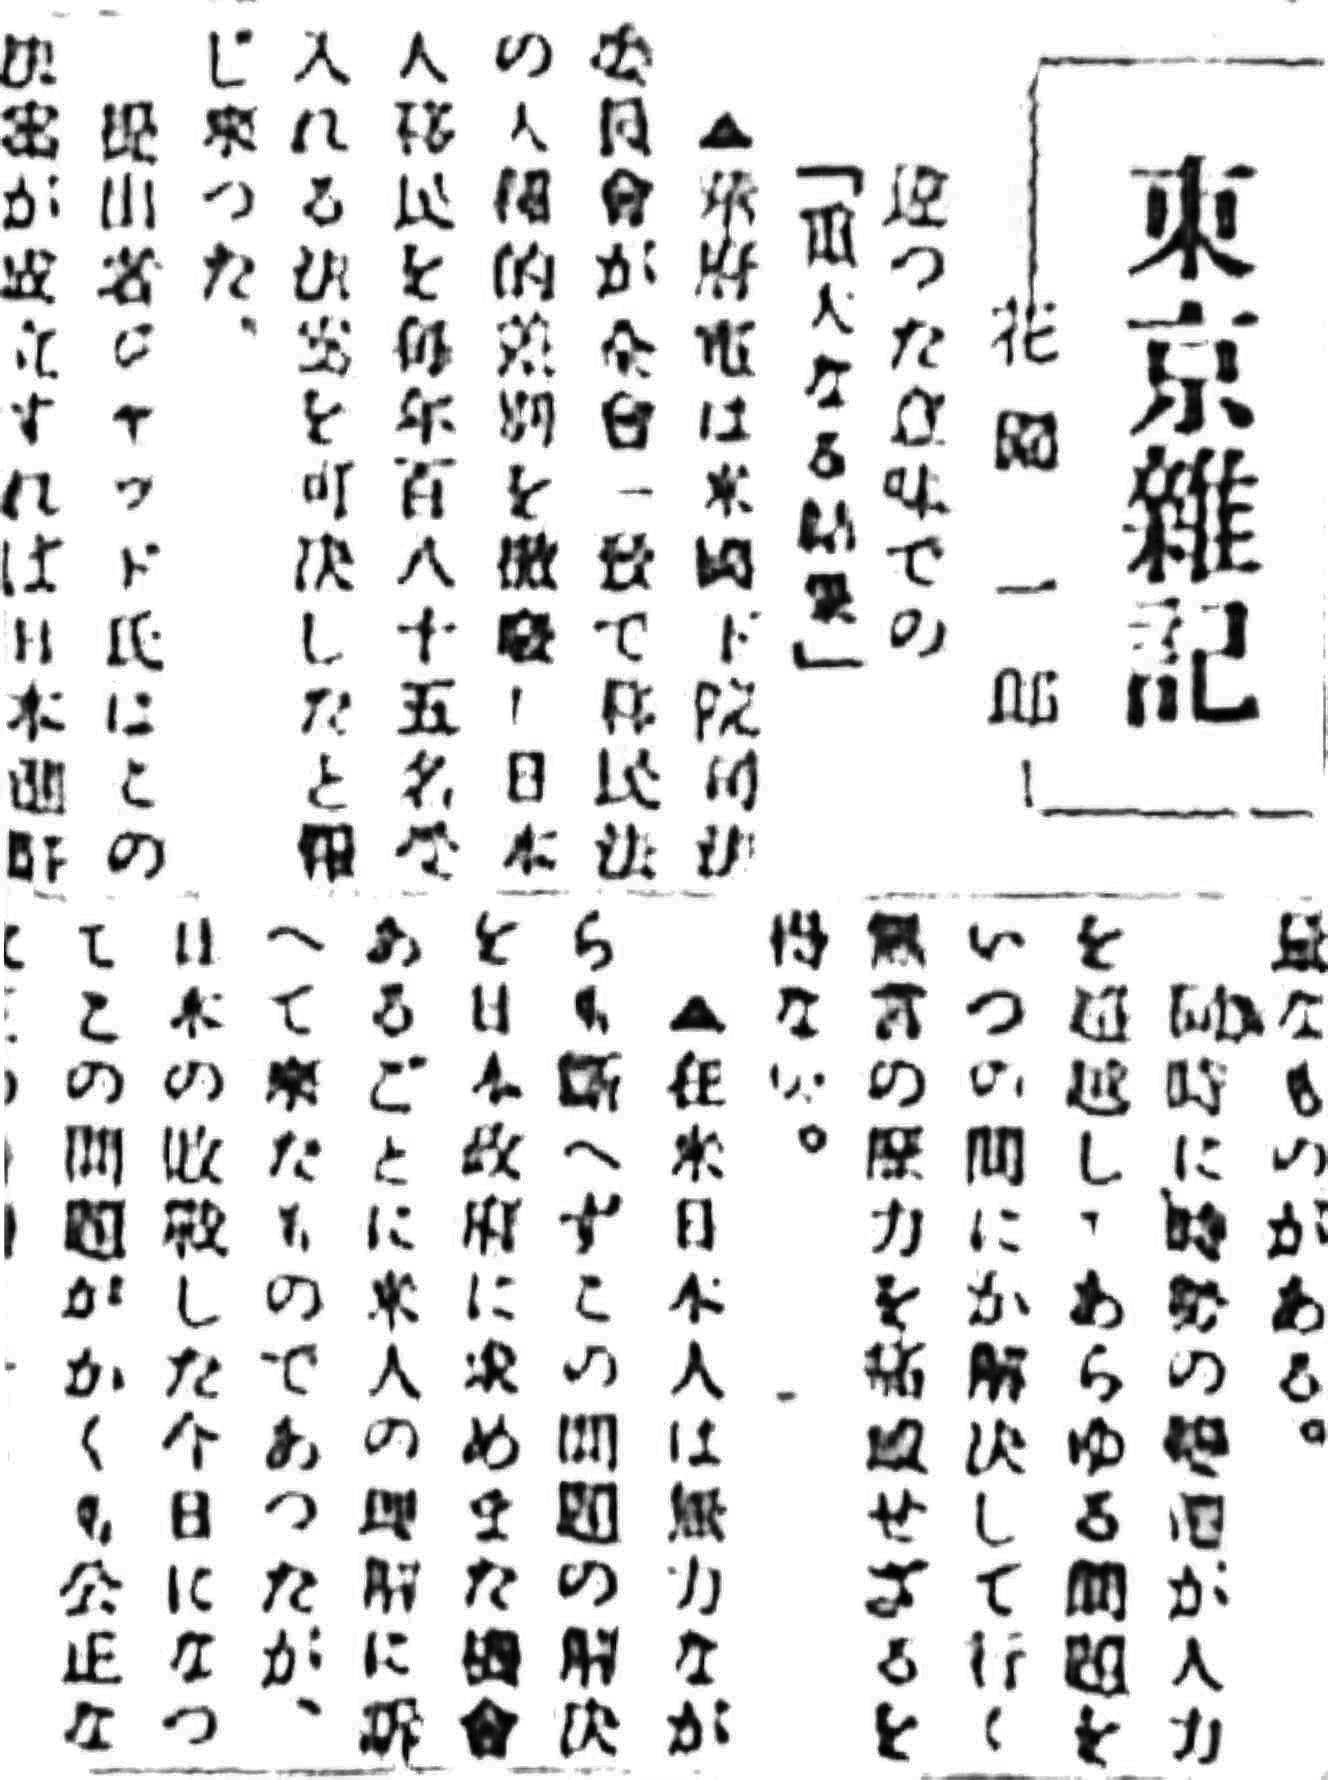 東京雜記
花園一郎
逆つた意味での
「重大なる結果」
▲華府電は米國下院司法
委員會が全會一致で移民法
の人種的差別を撤廢ー日本
人移民を毎年百八十五名受
入れる法案を可決したと報
じ來つた、
提出者ジャッド氏にこの
法案が成立すれは日本
益なものがある。
同時に時勢の が人力
を超越し、あらゆる問題を
いつの間にか解決して行く
無言の壓力を 取せざるを
得ない。
▲在米日本人は無力なが
らも斷へずこの問題の解決
を日本政府に求めまた機會
あるごとに米人の理解に訴
へて來たものであつたが、
日本の敗戰した今日になつ
てこの問題がかくも公正な